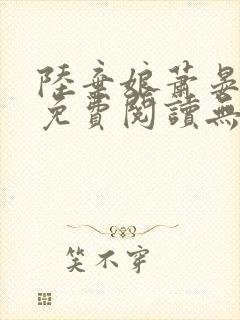 陸棄娘蕭晏
免費閱讀無
笑不穿